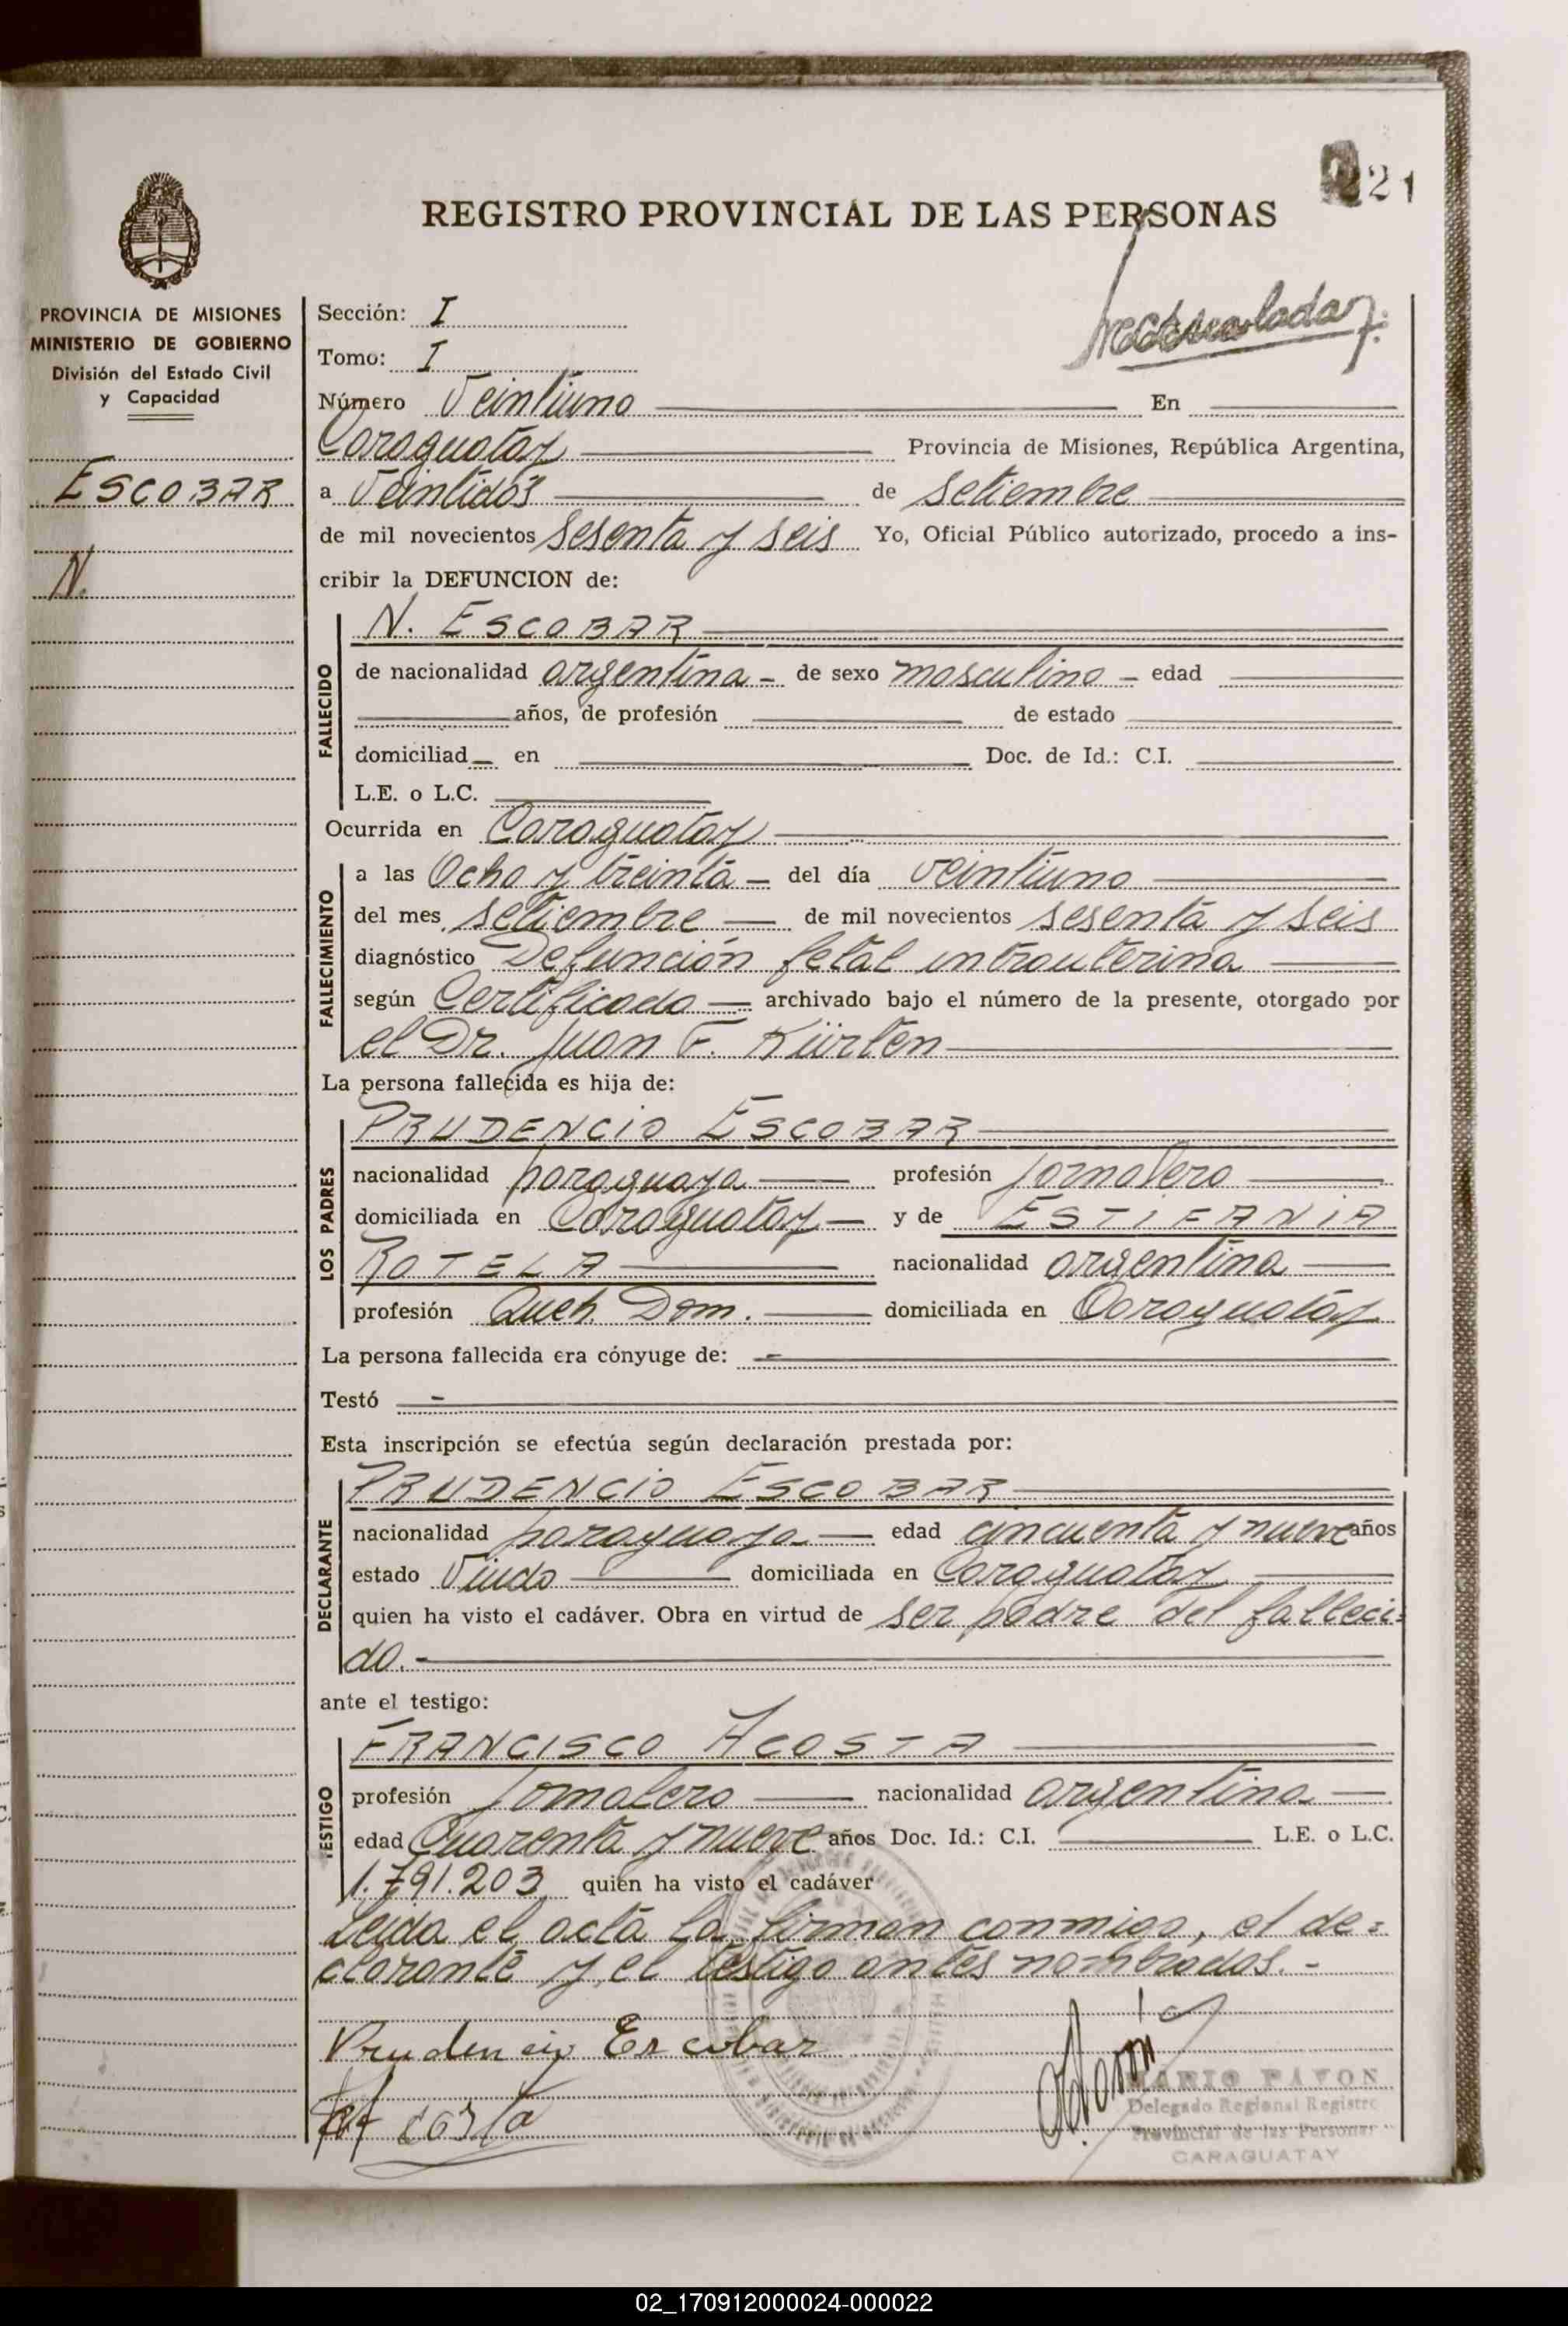 21
REGISTRO PROVINCIAL DE LAS PERSONAS
PROVINCIA DE MISIONES
MINISTERIO DE GOBIERNO
División del Estado Civil
y Capacidad
ESCOBAR
N.
Sección: I
Tomo: I
Número Veintiuno En
Caraguatay Provincia de Misiones, República Argentina,
a Veintidós de setiembre
de mil novecientos sesenta y seis Yo, Oficial Público autorizado, procedo a ins-
cribir la DEFUNCION de:
N. ESCOBAR
FALLECIDO
de nacionalidad argentina - de sexo masculino - edad
años, de profesión de estado
domiciliad en Doc. de Id.: C.I.
L.E. o L.C.
Ocurrida en Caraguatay
FALLECIMIENTO
a las Ocho y treinta - del día veintiuno
del mes setiembre de mil novecientos sesenta y seis
diagnóstico Defunción fetal intrauterina
según Certificado archivado bajo el número de la presente, otorgado por
el Dr. Juan F. Kürten
La persona fallecida es hija de:
LOS PADRES
PRUDENCIO ESCOBAR
nacionalidad paraguaya profesión Jornalero
domiciliada en Caraguatay y de ESTIFANIA
ROTELA nacionalidad argentina
profesión Queh. Dom. domiciliada en Caraguatay
La persona fallecida era cónyuge de: -
Testó -
Esta inscripción se efectúa según declaración prestada por:
DECLARANTE
PRUDENCIO ESCOBAR
nacionalidad paraguaya edad cincuenta y nueve años
estado Viudo domiciliada en Caraguatay
quien ha visto el cadáver. Obra en virtud de ser padre del falleci=
do.-
ante el testigo:
TESTIGO
FRANCISCO ACOSTA
profesión Jornalero nacionalidad argentina
edad Cuarenta y nueve años Doc. Id.: C.I. L.E. o L.C.
1.791.203 quien ha visto el cadáver
Leida el acta la firman conmigo, el de=
clarante y el testigo antes nombrados.-
Prudencio Escobar
MARIO PAVON
Delegado Regional Registro
Provincial de las Personas
CARAGUATAY
02_170912000024-000022